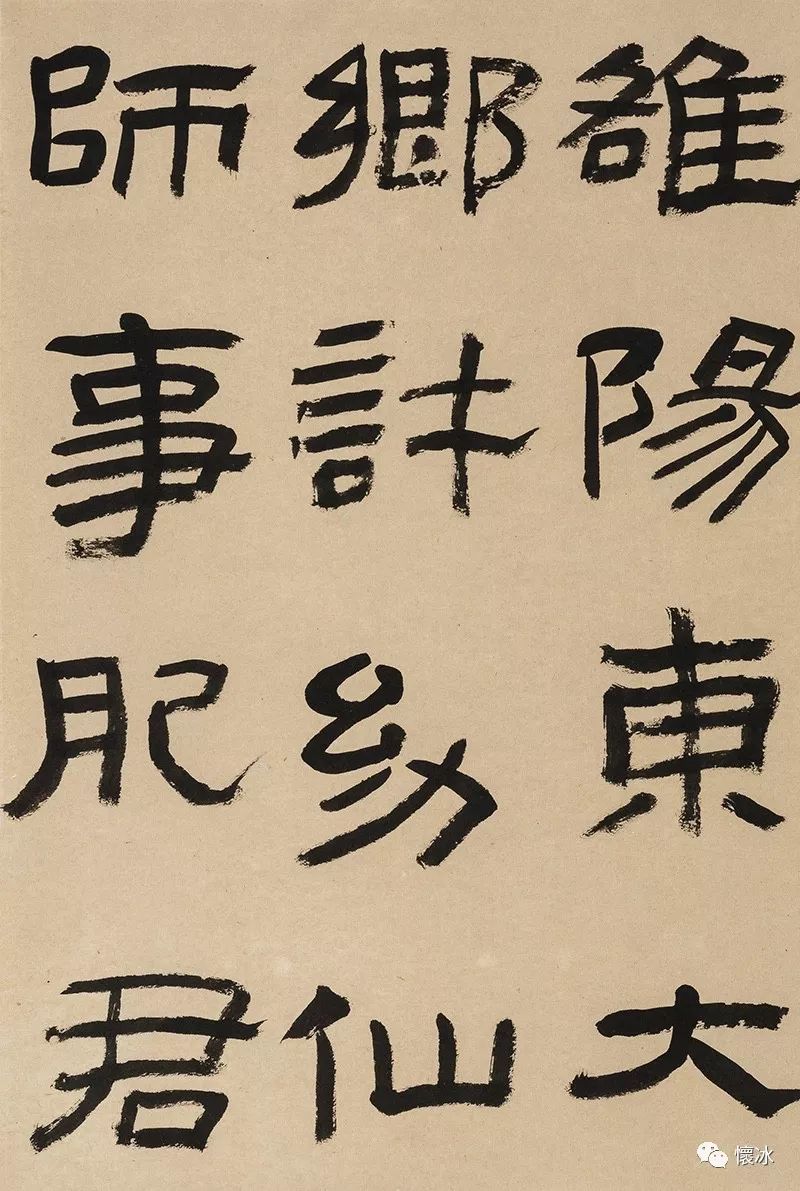 雒陽東大
鄉許幼仙
師事肥君
懷冰